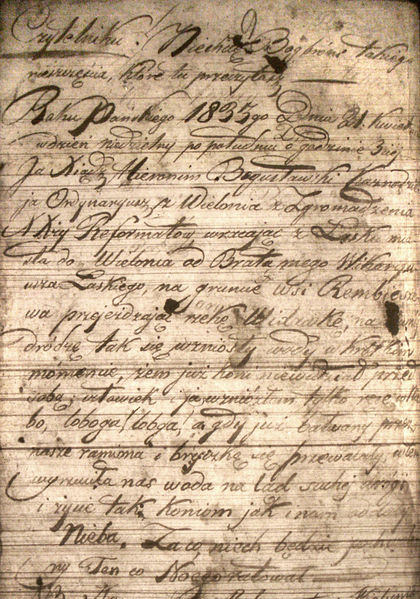 Czytelniku! Niechay Bóg broni takiego
nieszczęścia, które tu przeczytasz
Roku Pańskiego 1833go Dnia 21. Kwiet
w dzień niedzielny po południu o godzinie 3ciej
Ja Xiądz Hieronim Bogusławski Kaznodzie
ja Ordynaryusz z Wielunia z Zgromadzenia
XXży Reformatów, wracając z Łasku mia
sta do Wielunia od Brata mego Wikaryu
sza Łaskiego, na gruncie wsi Rembies
wa przejeżdżając rzekę Widawkę, na
drodze tak się wzniosły wody w krótkim
momencie, żem już koni niewidział przed
sobą; człowiek i ja wzniosłem tylko ręce
bo, łoboga! łoboga! a gdy już bałwany przez
nasze ramiona i bryczkę się przewalały,
wyrzuciła nas woda na ląd suchej drogi
i życie tak koniom jak i nam
Nieba. Za co niech będzie
ny Ten co Noego ratował